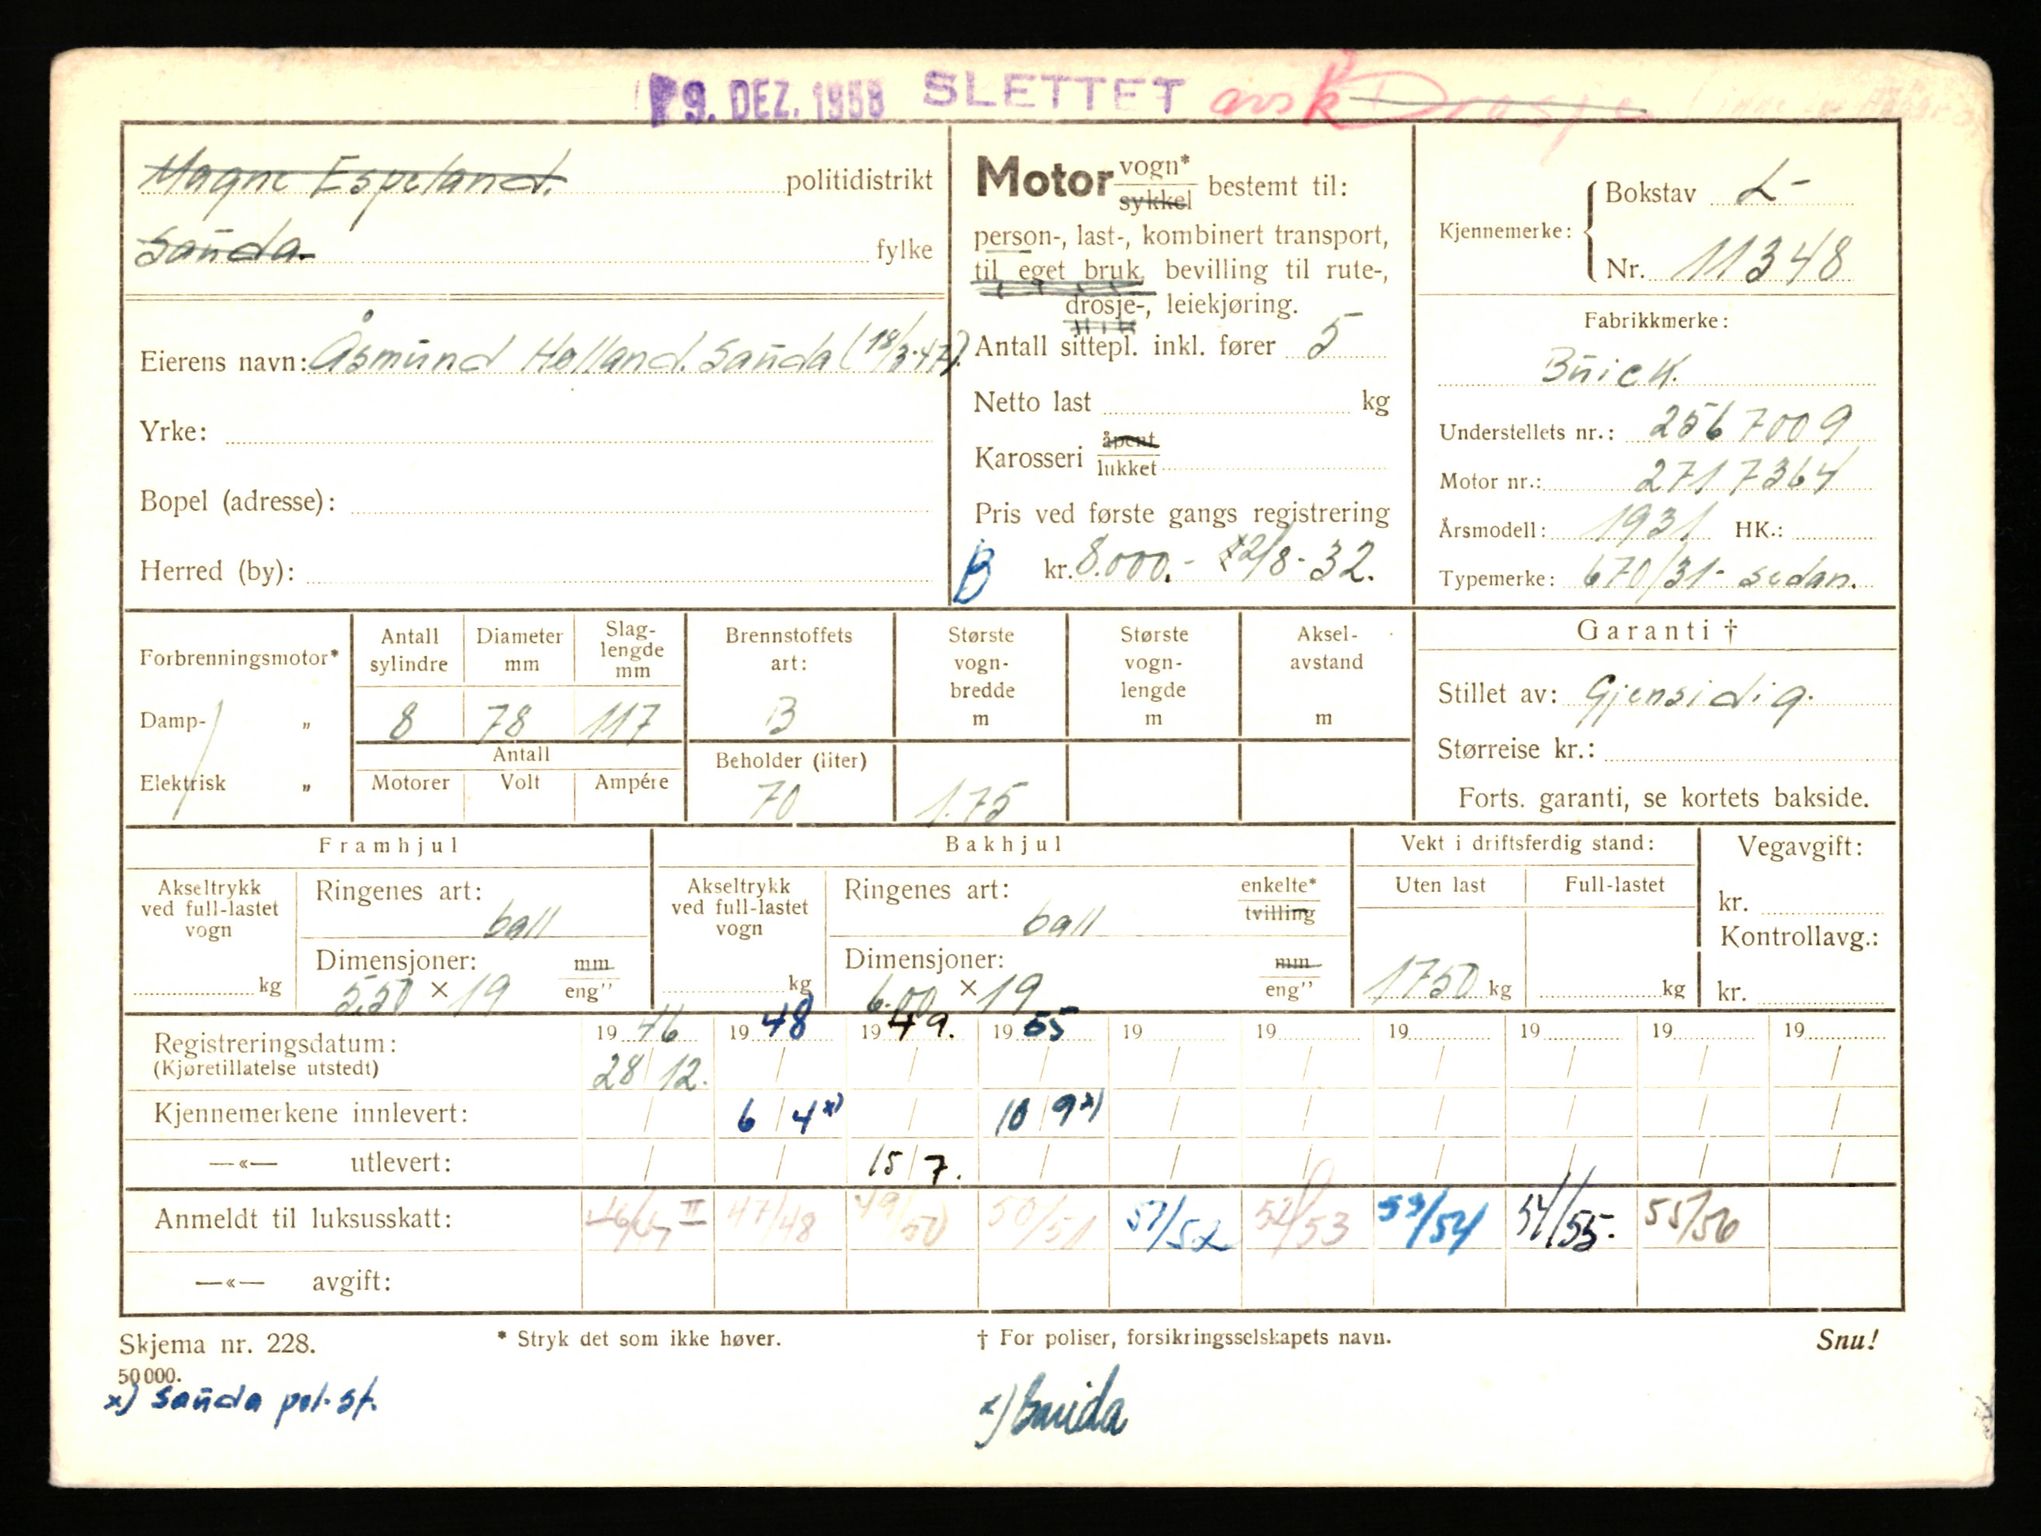 9. DEZ. 1958 SLETTET avsk Drosje
Magne Espeland. politidistrikt
Sauda. fylke
Eierens navn: Åsmund Helland. Sauda (18/3-47).
Yrke:
Bopel (adresse):
Herred (by):
Motor vogn* sykkel bestemt til:
person-, last-, kombinert transport,
til eget bruk, bevilling til rute-,
drosje-, leiekjøring.
Antall sittepl. inkl. fører 5
Netto last kg
Karosseri åpent lukket
Pris ved første gangs registrering
B kr. 8.000.- 22/8-32.
Kjennemerke: Bokstav L-
Nr. 11348
Fabrikkmerke:
Buick.
Understellets nr.: 2567009
Motor nr.: 2717364
Årsmodell: 1931 HK.:
Typemerke: 670/31- sedan.
Forbrenningsmotor*
Damp- „
Elektrisk „
Antall sylindre Diameter mm Slag-lengde mm
8 78 117
Antall
Motorer Volt Ampére
Brennstoffets art:
B
Beholder (liter)
70
Største vogn-bredde m
1.75
Største vogn-lengde m
Aksel-avstand m
Garanti †
Stillet av: Gjensidig.
Størreise kr.:
Forts. garanti, se kortets bakside.
Framhjul
Akseltrykk ved full-lastet vogn
kg
Ringenes art:
ball
Dimensjoner: mm eng"
5.50 × 19
Bakhjul
Akseltrykk ved full-lastet vogn
kg
Ringenes art: enkelte* tvilling
ball
Dimensjoner: mm eng"
6.00 × 19
Vekt i driftsferdig stand:
Uten last Full-lastet
1750 kg kg
Vegavgift:
kr.
Kontrollavg.:
kr.
Registreringsdatum: 1946 1948 1949. 1955 19 19 19 19 19 19
(Kjøretillatelse utstedt) 28/12. / / / / / / / / /
Kjennemerkene innlevert: / 6/4x) / 10/9x) / / / / / /
—«— utlevert: / / 15/7. / / / / / / /
Anmeldt til luksusskatt: 46/47 II 47/48 49/50 50/51 51/52 52/53 53/54 54/55. 55/56
—«— avgift:
Skjema nr. 228. * Stryk det som ikke høver. † For poliser, forsikringsselskapets navn. Snu!
50000.
x) Sauda pol. st.
x) Sauda